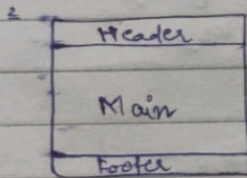 2
Header
Main
Footer